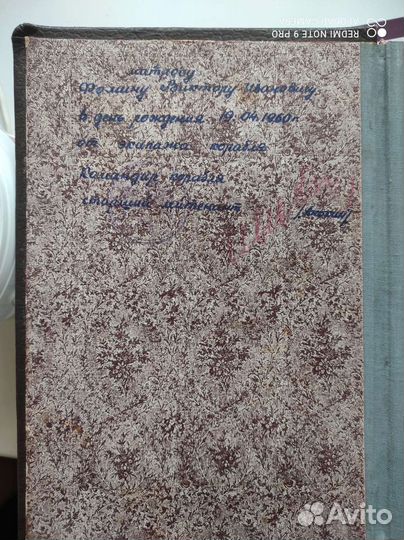 REDMI NOTE 9 PRO
AI QUAD CAMERA
матросу
Фомину Виктору Ивановичу.
в день рождения 19.04.1960 г.
от экипажа корабля
Командир корабля
старший лейтенант
Avito